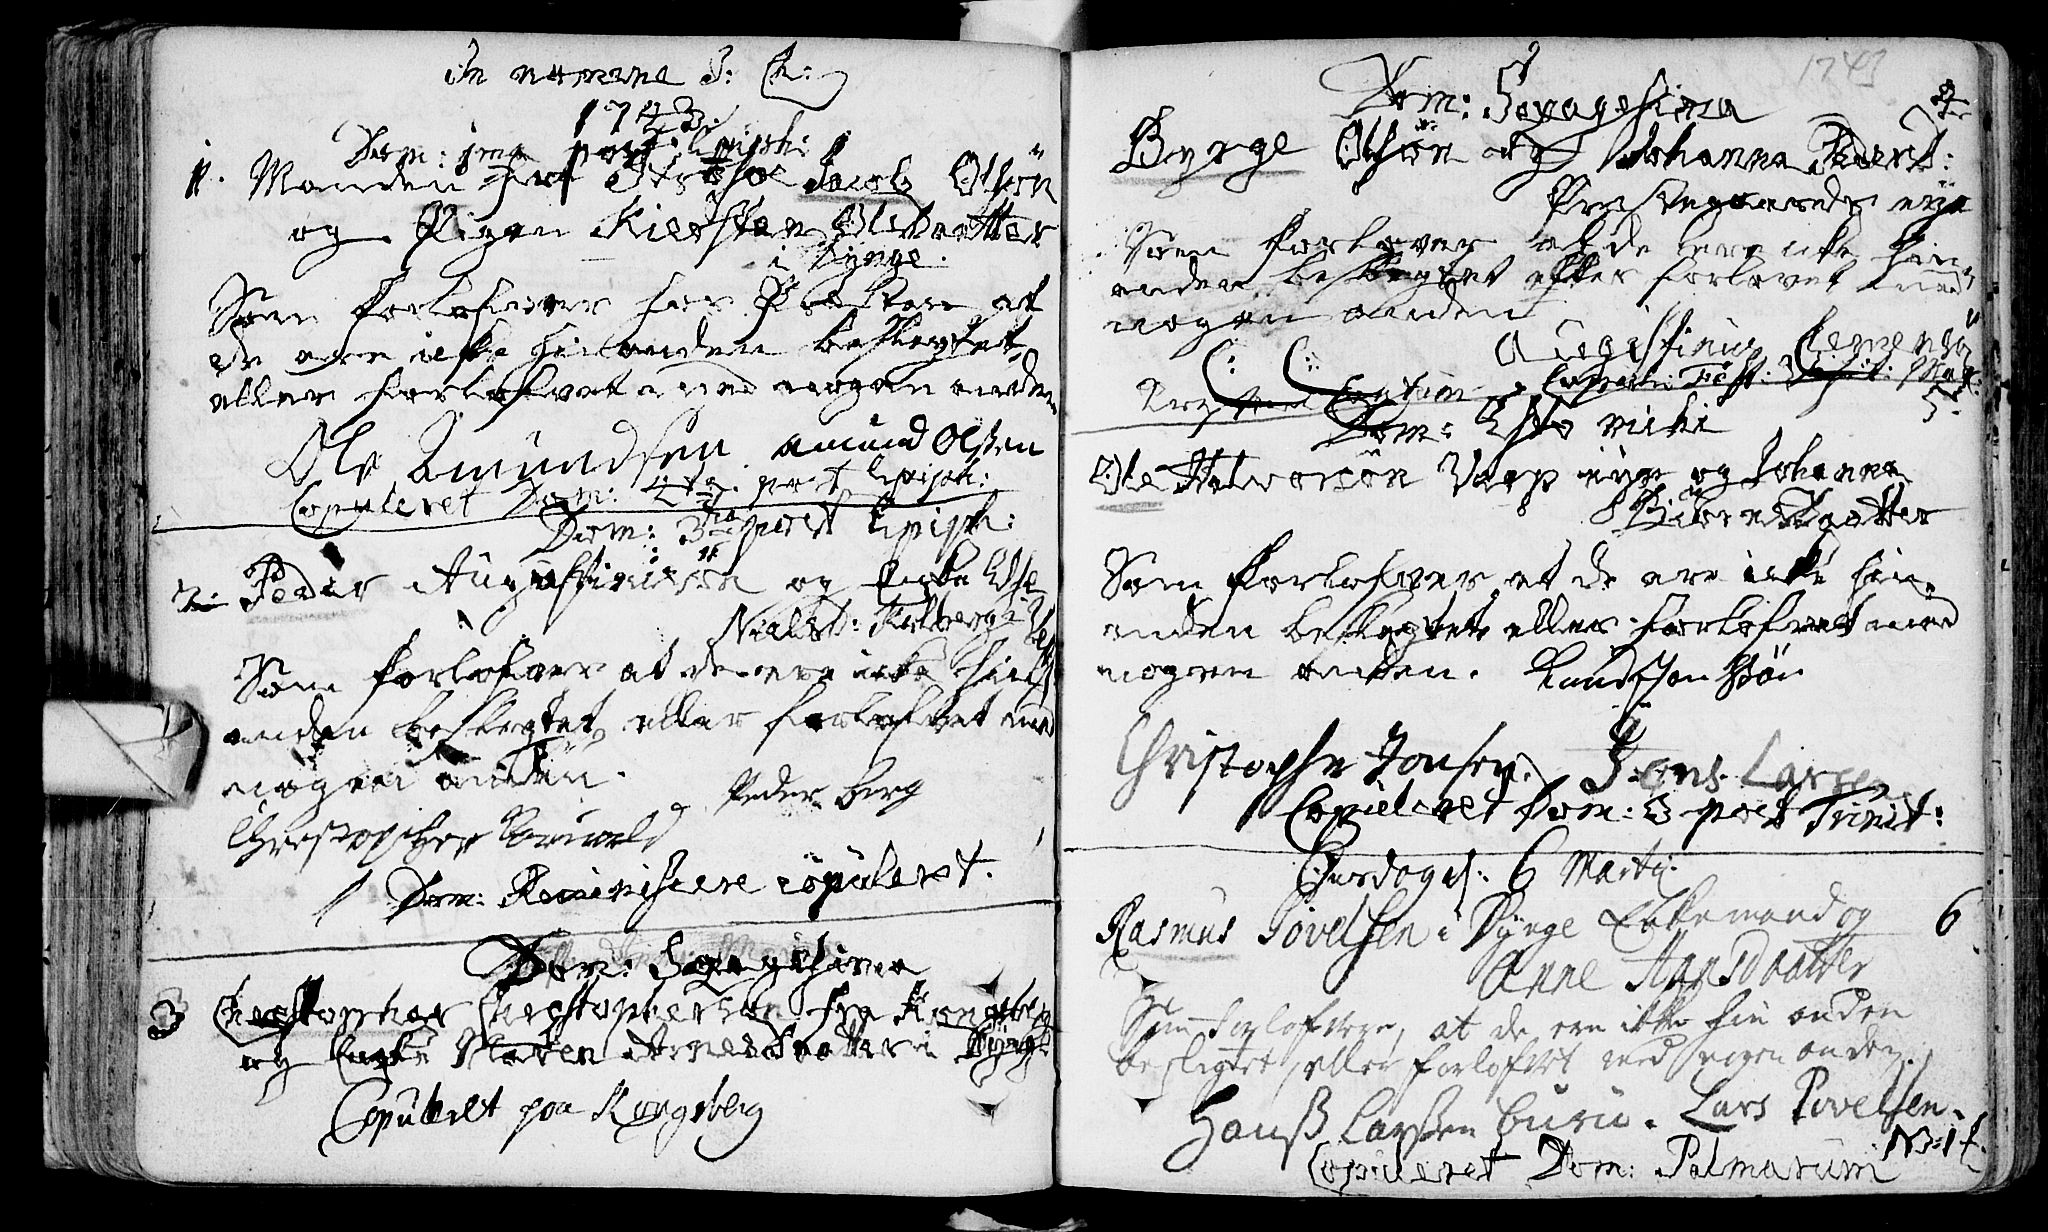 In nomine J: Ch:
1743.
Dom: 1ma post Epiph:
1. Manden fra Jacob Olsön
og Pigen Kiersten Olsdaatter
i Bynge.
Som forlofwer for Præsten at
de ere icke hinanden beslegtet
eller forlofvet med nogen anden
Ole Amundsen. amund Olsen
Copuleret Dom: post Epiph:
Dom: 3tia post Epiph:
2. Peder Augustinusön og Enke Else
Nielsd:
Som forlofwer at de ere icke hin
anden beslegtet, eller forlofvet med
nogen anden.
Peder Berg
Christopher
Dom: Reminiscere copuleret.
Dom: Septuagesima
3 Christopher Christophersön fra Kongsberg
og Enke Maren Arnesdaatter i Bynge
Copuleret paa Kongsberg
1743
Dom: Sexagesima
4
Byrge Olsön og Johanna Pedersd:
Prestegaards eye
Som forlover at de ere icke hin
anden beslegtet eller forlovet med
nogen anden
Augustinus Clemensö
Dom: Esto mihi
5.
Ole Halvorsön eye og Johanna
Biörnsdaatter
Som forlofwer at de ere icke hin
anden beslegtet eller forlofvet med
nogen anden. Knud
Christopher Jonsen. Jens Larsen
Copuleret Dom: 3 post Trinit:
6 Martij.
Rasmus Povelsen i Bynge Enkemand og 6
Anne Hansdaatter
Som forlofvere, at de ere ikke hin anden
besligtet, eller forlofvet med nogen anden.
Hanß Larßen buru. Lars Povelsen.
Copuleret Dom: Palmarum